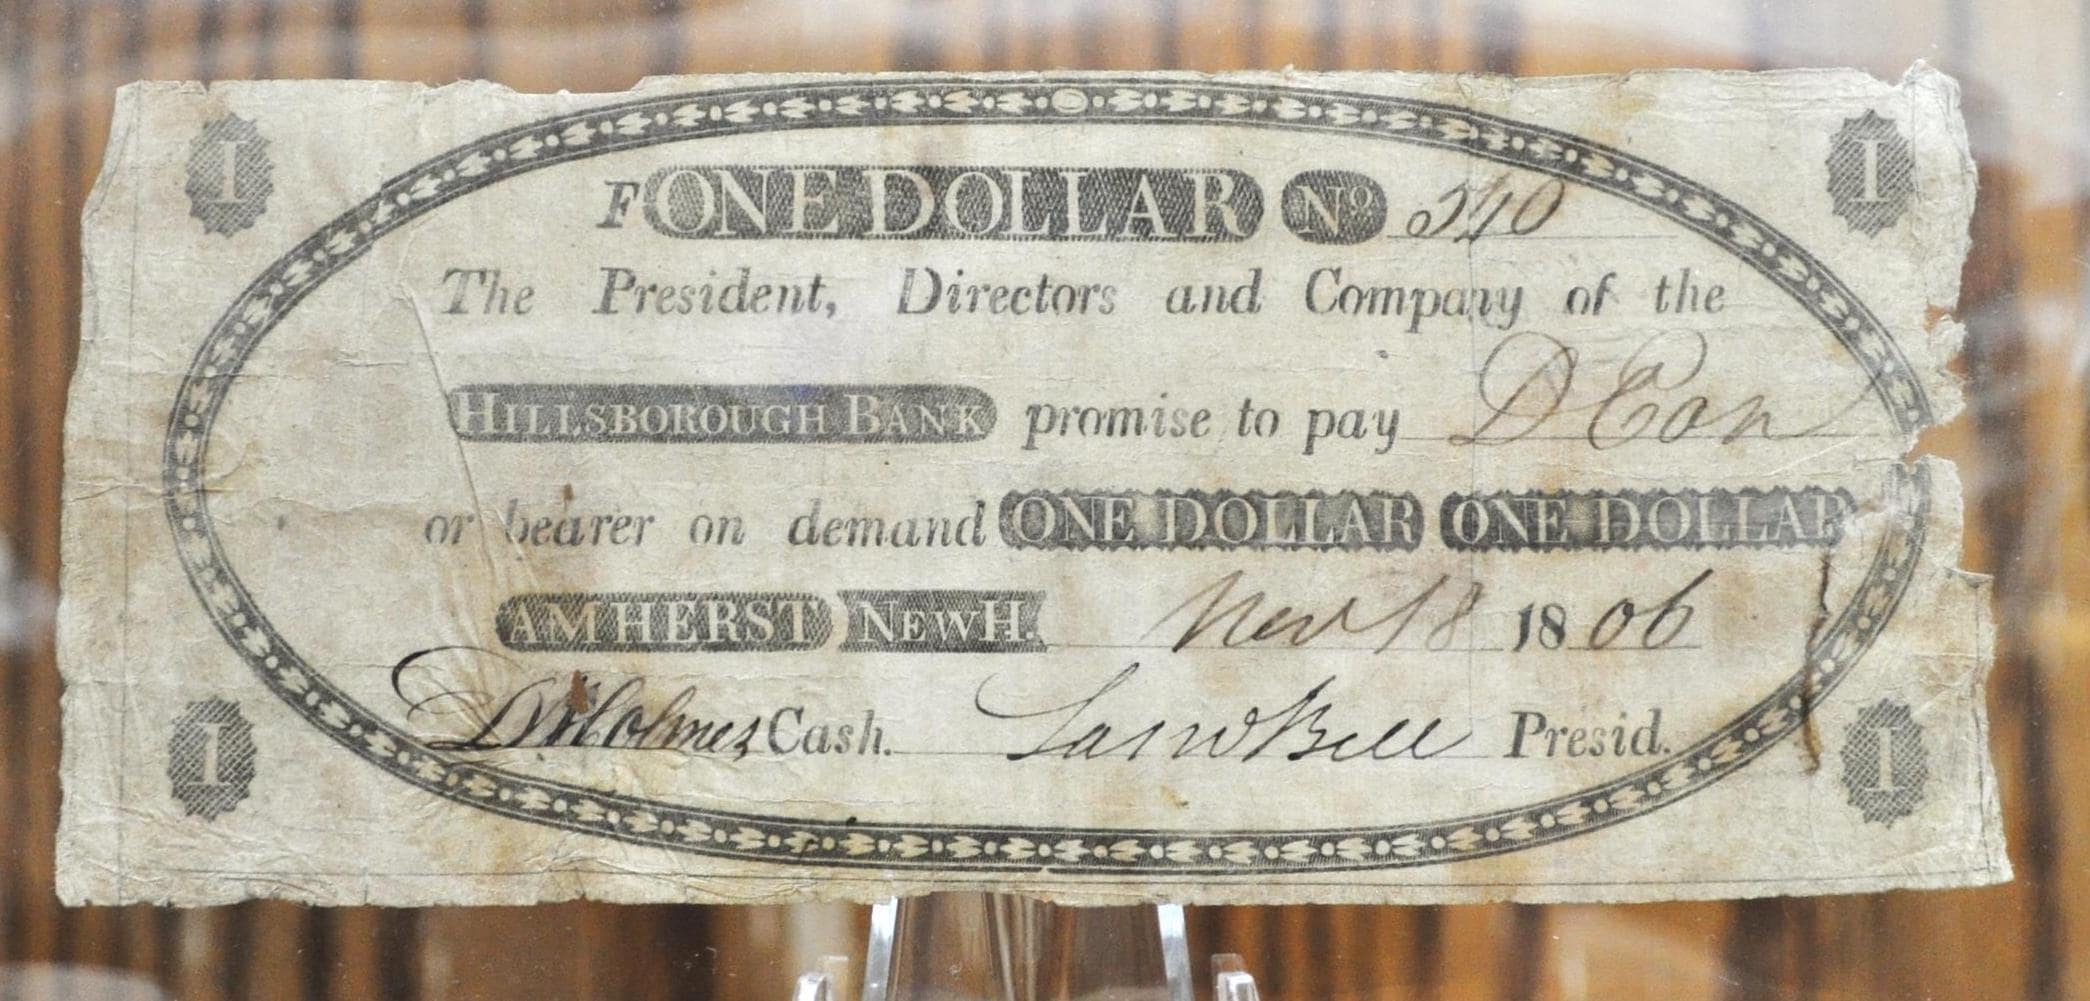 1 1
F ONE DOLLAR No. 540
The President, Directors and Company of the
HILLSBOROUGH BANK promise to pay D Eon
or bearer on demand ONE DOLLAR ONE DOLLAR
AMHERST NEWH. Nov 18 1806
D Holmes Cash. Saml Bell Presid.
1 1